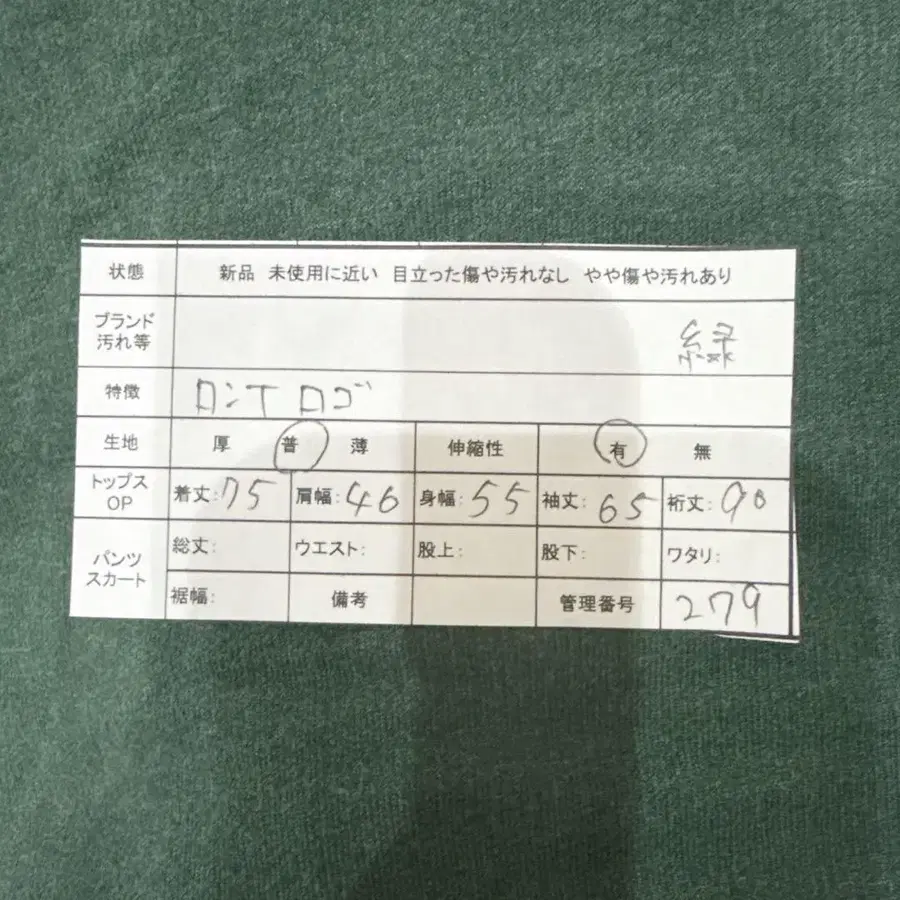 状態 新品 未使用に近い 目立った傷や汚れなし やや傷や汚れあり
ブランド
汚れ等 緑
特徴 ロンT ロゴ
生地 厚 普 薄 伸縮性 有 無
トップス
OP 着丈:75 肩幅:46 身幅:55 袖丈:65 裄丈:90
パンツ
スカート
総丈: ウエスト: 股上: 股下: ワタリ:
裾幅: 備考 管理番号 279